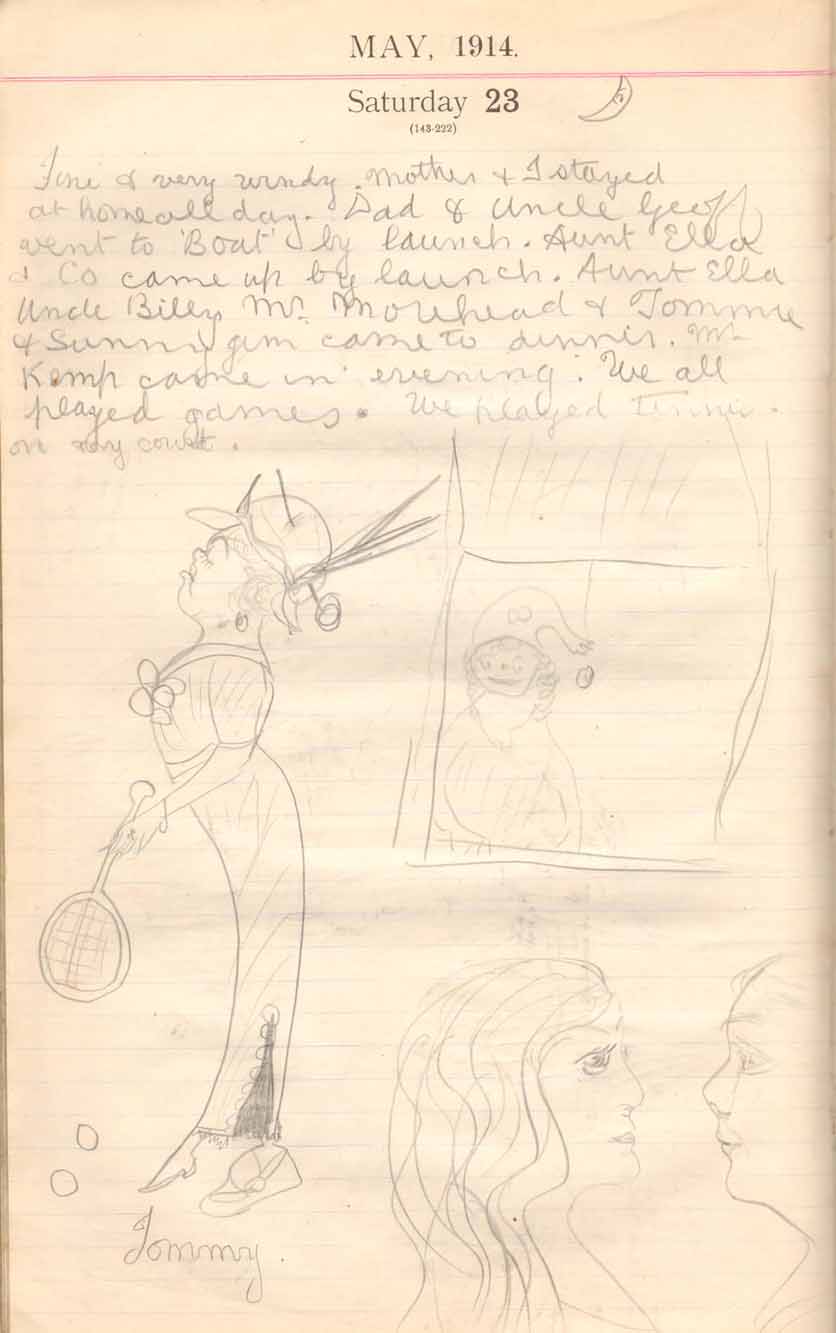 MAY, 1914.
Saturday 23
(143-222)
Fine & very windy. Mother & I stayed
at home all day. Dad & Uncle Geoff
went to 'Boat' by launch. Aunt Ella
& Co came up by launch. Aunt Ella
Uncle Billy Mr. Morehead & Tommie
& Sunny Jim came to dinner. Mr
Kemp came in evening. We all
played games. We played tennis.
on my court.
Tommy.